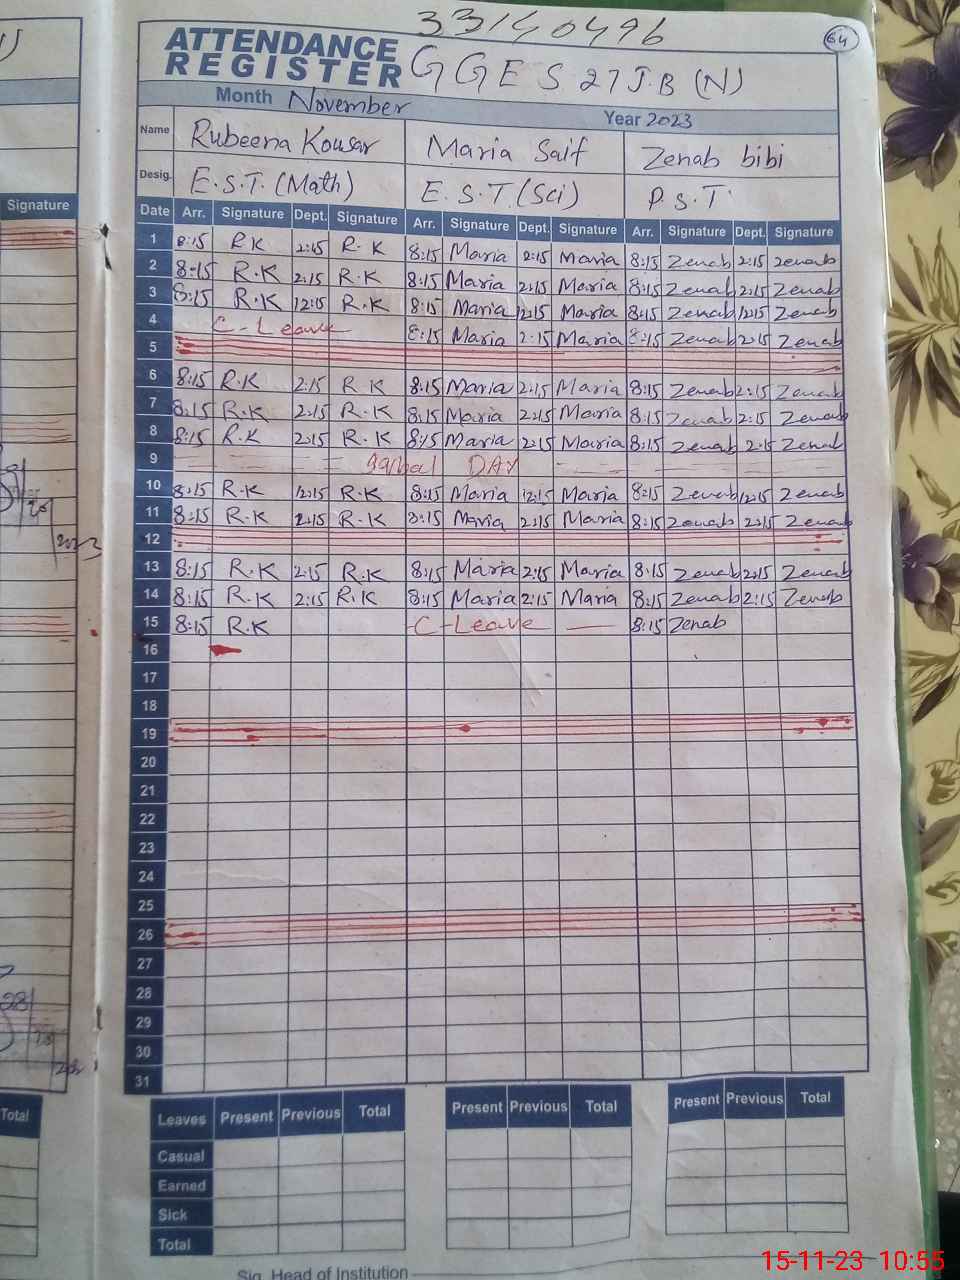 33140496
64
ATTENDANCE REGISTER GGES 27 J.B (N)
Month November Year 2023
Name Rubeena Kousar Maria Saif Zenab bibi
Desig. E.S.T. (Math) E.S.T. (Sci) P.S.T.
Signature
Date Arr. Signature Dept. Signature Arr. Signature Dept. Signature Arr. Signature Dept. Signature
1 8:15 R.K 2:15 R.K 8:15 Maria 2:15 Maria 8:15 Zenab 2:15 Zenab
2 8:15 R.K 2:15 R.K 8:15 Maria 2:15 Maria 8:15 Zenab 2:15 Zenab
3 8:15 R.K 12:15 R.K 8:15 Maria 12:15 Maria 8:15 Zenab 12:15 Zenab
4 C-Leave 8:15 Maria 2:15 Maria 8:15 Zenab 2:15 Zenab
5
6 8:15 R.K 2:15 R.K 8:15 Maria 2:15 Maria 8:15 Zenab 2:15 Zenab
7 8:15 R.K 2:15 R.K 8:15 Maria 2:15 Maria 8:15 Zenab 2:15 Zenab
8 8:15 R.K 2:15 R.K 8:15 Maria 2:15 Maria 8:15 Zenab 2:15 Zenab
9 Iqbal DAY
10 8:15 R.K 12:15 R.K 8:15 Maria 12:15 Maria 8:15 Zenab 12:15 Zenab
11 8:15 R.K 2:15 R.K 8:15 Maria 2:15 Maria 8:15 Zenab 2:15 Zenab
12
13 8:15 R.K 2:15 R.K 8:15 Maria 2:15 Maria 8:15 Zenab 2:15 Zenab
14 8:15 R.K 2:15 R.K 8:15 Maria 2:15 Maria 8:15 Zenab 2:15 Zenab
15 8:15 R.K C-Leave 8:15 Zenab
16
17
18
19
20
21
22
23
24
25
26
27
28
29
30
31
Total
Leaves Present Previous Total Present Previous Total Present Previous Total
Casual
Earned
Sick
Total
Sig. Head of Institution
15-11-23 10:55